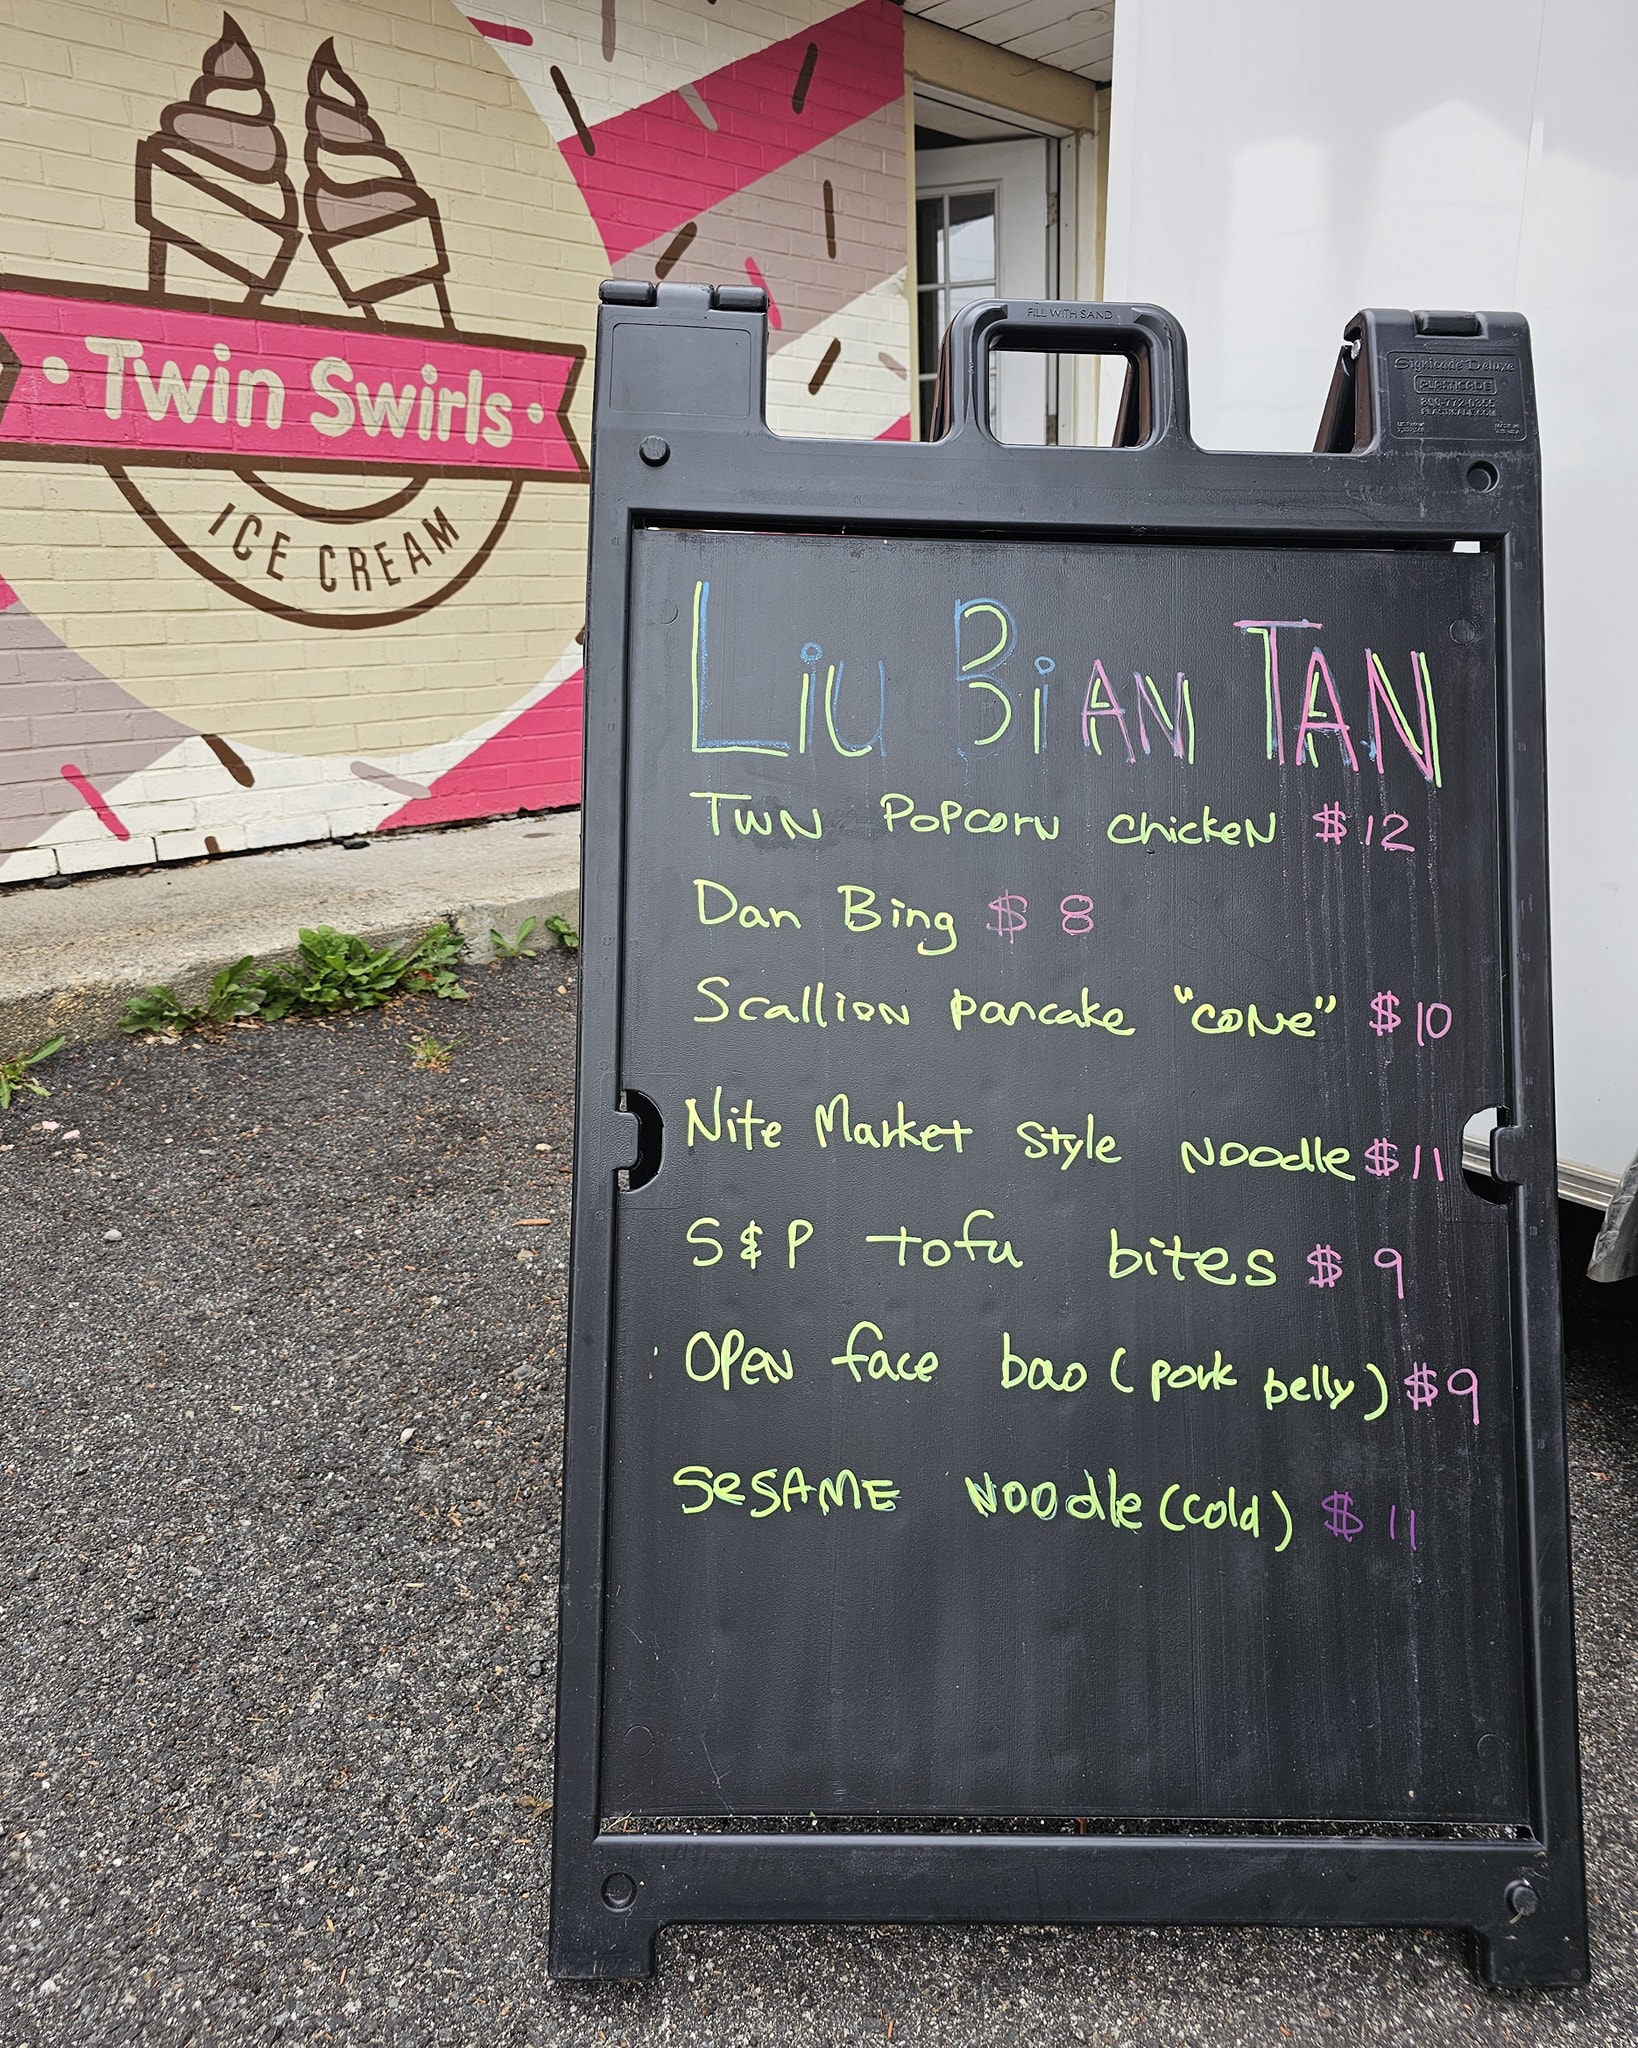 · Twin Swirls ·
ICE CREAM
FILL WITH SAND
Signicade Deluxe
PLASTICADE
800-772-0355
PLASTICADE.COM
Liu BiAN TAN
TWN POPcorN chickeN $12
Dan Bing $8
ScallioN pancake "coNe" $10
Nite Market style NOOdle $11
S&P tofu bites $9
OPeN face bao (pork belly) $9
SeSAME NOOdle (cold) $11